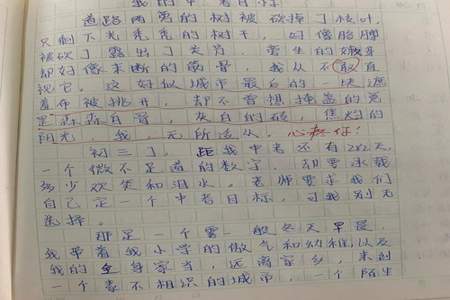 我的中考目标
道路两旁的树被砍掉了枝叶,
只剩下光秃秃的树干,好像胳膊
被砍了露出了夹克,寄生的嫩芽
却好像未断的筋骨,我从不敢直
视它。这好似城市最后的一块遮
羞布被挑开,却不曾想掩盖的竟
是森森白骨,灰白的破,焦灼的
阳光,我,无所适从。心疼你!
初三了,距我中考还有202天,
一个微不足道的数字,却要承载
多少欢笑和泪水。老师要求我们
自己定一个中考目标,可我别无
选择。
那是一个雾一般冬天早晨,
我带着我小学的傲气和幼稚以及
我的全身家当,远离家乡,来到
一个毫不相识的城市,一个陌生